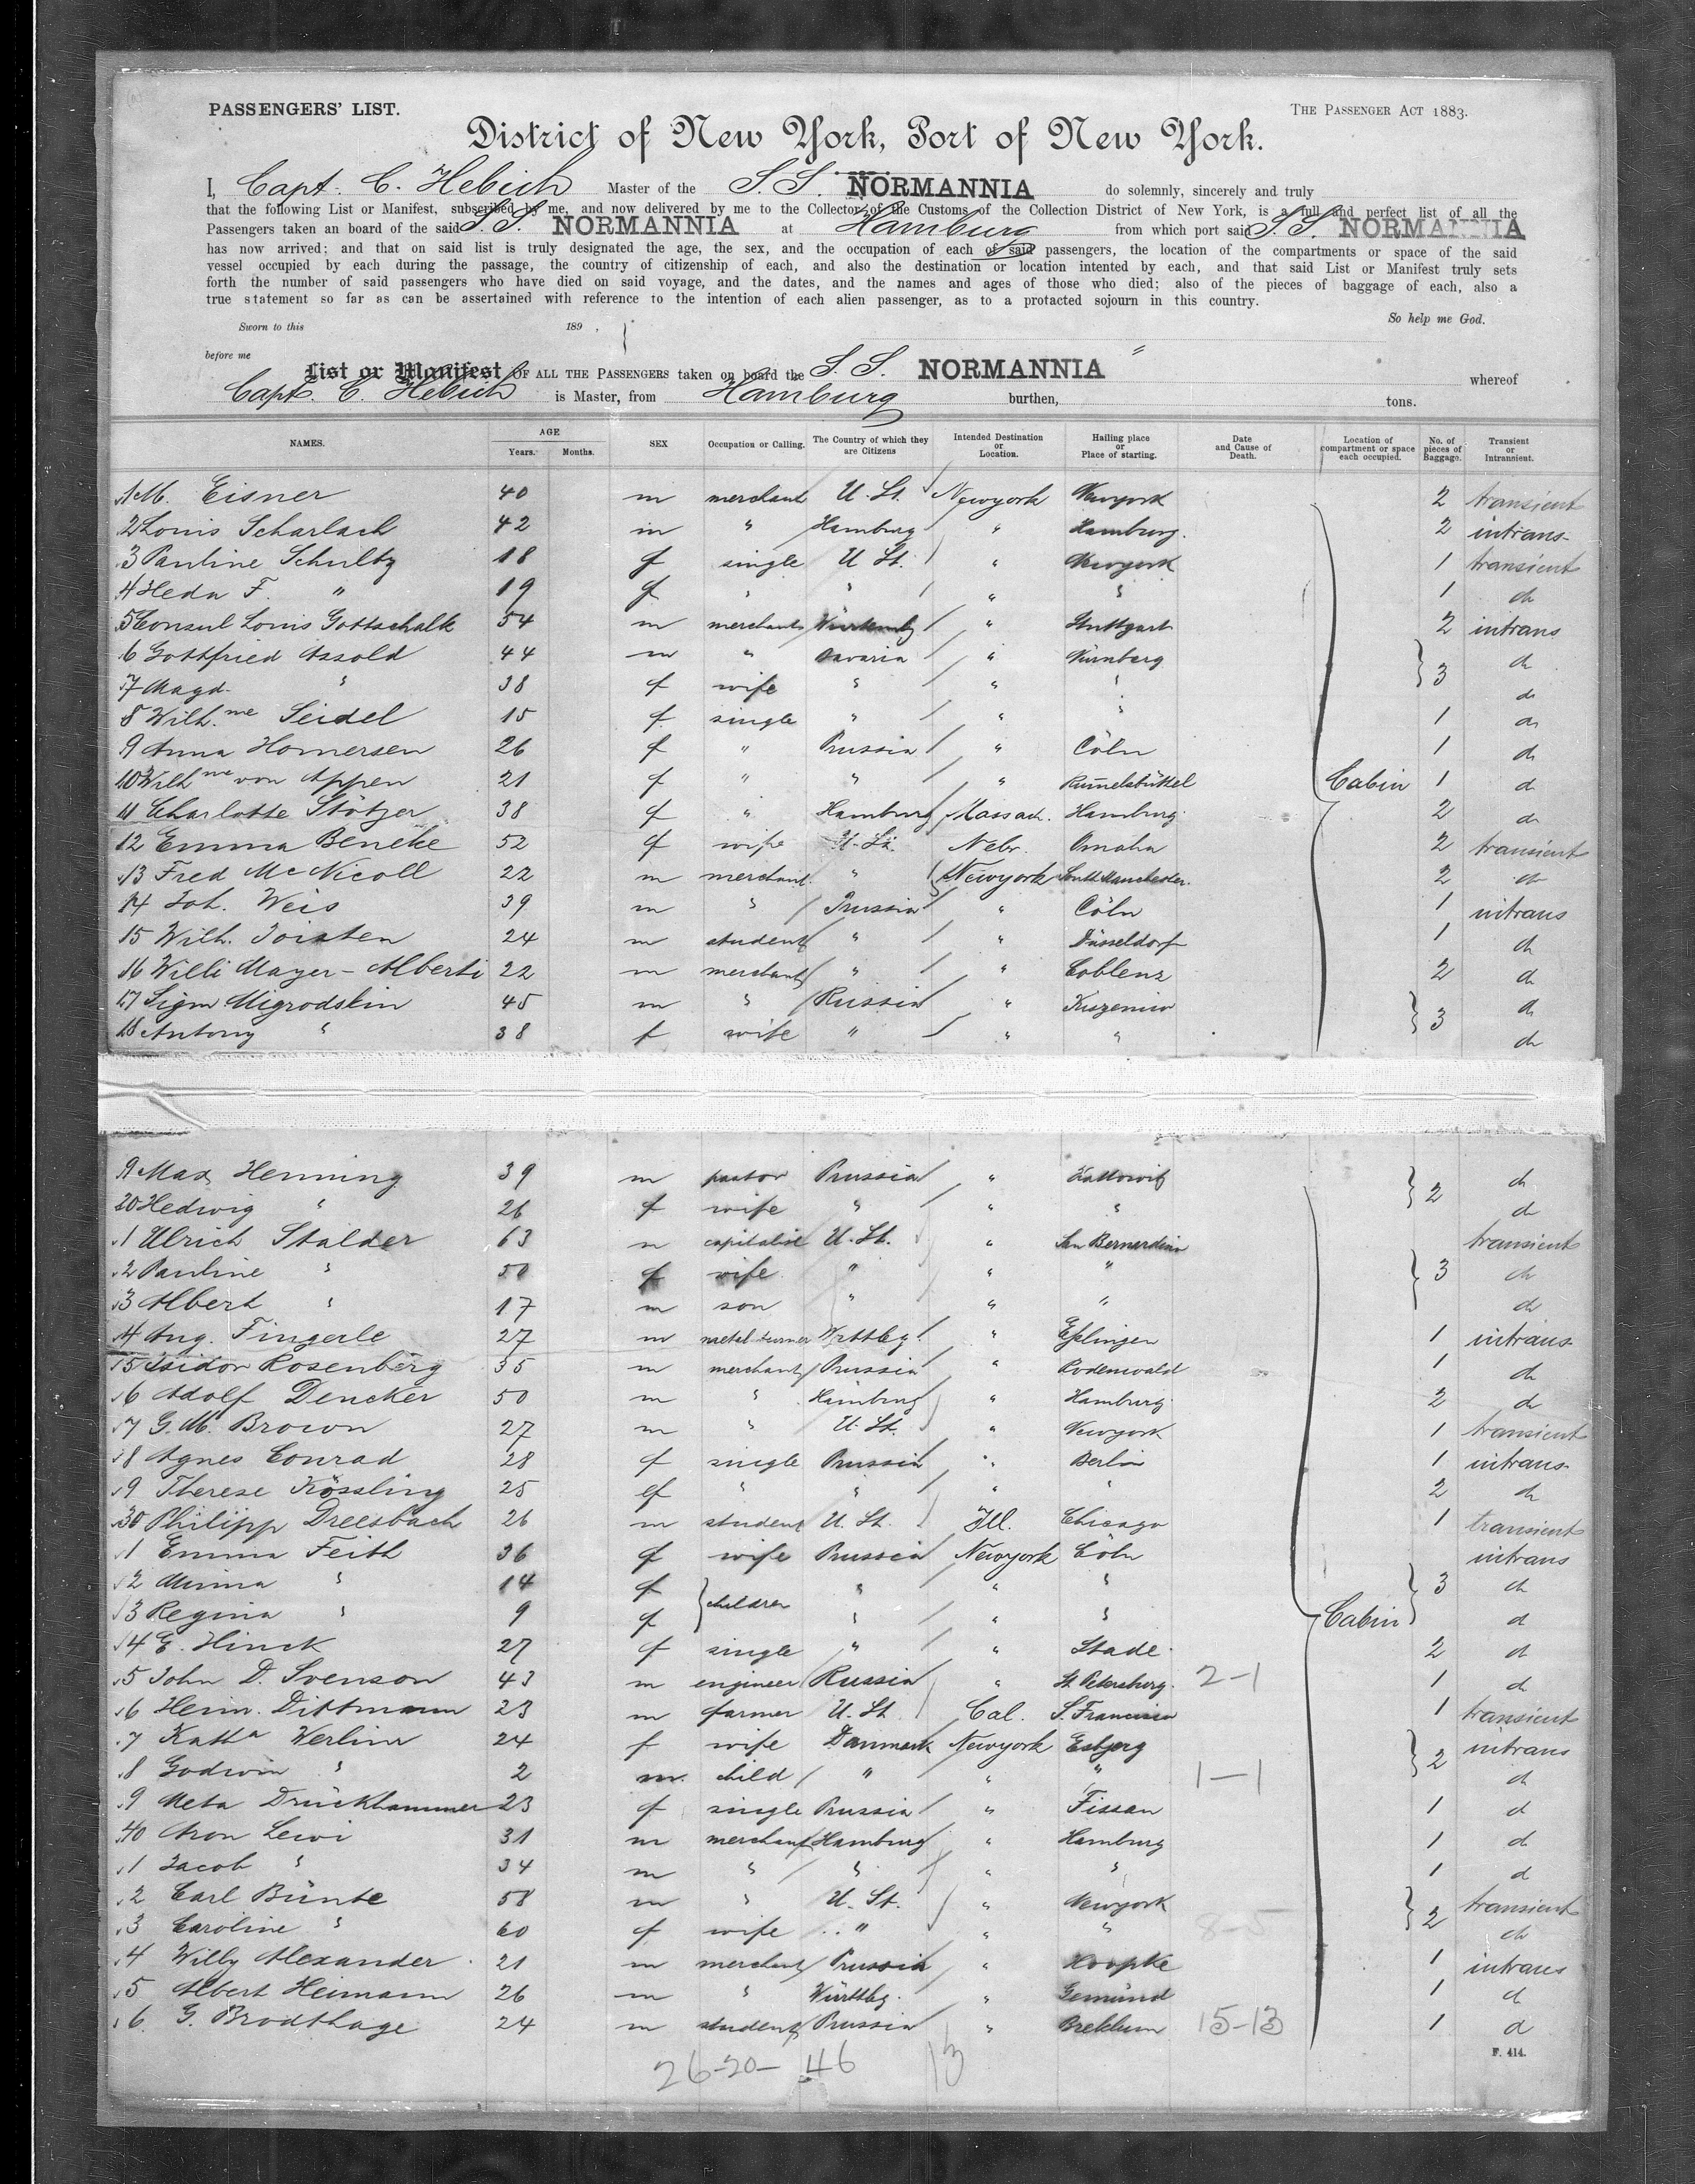 PASSENGERS' LIST. THE PASSENGER ACT 1883.
District of New York, Port of New York.
I, Capt. C. Hebich Master of the S.S. NORMANNIA do solemnly, sincerely and truly
that the following List or Manifest, subscribed by me, and now delivered by me to the Collector of the Customs of the Collection District of New York, is a full and perfect list of all the
Passengers taken an board of the said S.S. NORMANNIA at Hamburg from which port said S.S. NORMANNIA
has now arrived; and that on said list is truly designated the age, the sex, and the occupation of each of said passengers, the location of the compartments or space of the said
vessel occupied by each during the passage, the country of citizenship of each, and also the destination or location intented by each, and that said List or Manifest truly sets
forth the number of said passengers who have died on said voyage, and the dates, and the names and ages of those who died; also of the pieces of baggage of each, also a
true statement so far as can be assertained with reference to the intention of each alien passenger, as to a protacted sojourn in this country.
Sworn to this 189 , So help me God.
before me
List or Manifest OF ALL THE PASSENGERS taken on board the S.S. NORMANNIA " whereof
Capt. C. Hebich is Master, from Hamburg burthen, tons.
NAMES. AGE Years. Months. SEX Occupation or Calling. The Country of which they are Citizens Intended Destination or Location. Hailing place or Place of starting. Date and Cause of Death. Location of compartment or space each occupied. No. of pieces of Baggage. Transient or Intransient.
1 M. Eisner 40 m merchant U. St. Newyork Newyork 2 transient
2 Louis Scharlach 42 m " Hamburg " Hamburg. 2 intrans-
3 Pauline Schultz 18 f single U St. " Newyork 1 transient
4 Heda F. " 19 f " " " " 1 do
5 Consul Louis Gottschalk 54 m merchant " Stuttgart 2 intrans
6 Gottfried Assold 44 m " Bavaria " Nürnberg 3 do
7 Magd. " 38 f wife " " " do
8 Wilh.me Seidel 15 f single " " " 1 do
9 Anna Homersen 26 f " Prussia " Cöln 1 do
10 Wilh me von Appen 21 f " " " Cabin 1 d
11 Charlotte Stötzer 38 f " Hamburg Massach. Hamburg 2 do
12 Emma Beneke 52 f wife U. St. Nebr. Omaha 2 transient
13 Fred McNicoll 22 m merchant " Newyork South Manchester. 2 do
14 Joh. Weis 39 m " Prussia " Cöln 1 intrans
15 Wilh. Joisten 24 m student " " Düsseldorf 1 do
16 Willi Mayer-Alberti 22 m merchant " " Coblenz 2 do
17 Sigm Migrodskin 45 m " Russia " 3 do
18 Antony " 38 f wife " " " do
9 Max Henning 39 m pastor Prussia " Kattowitz 2 do
20 Hedwig " 26 f wife " " " do
1 Ulrich Stalder 63 m capitalist U. St. " San Bernerdino transient
2 Pauline " 50 f wife " " " 3 do
3 Albert " 17 m son " " " do
4 Aug. Fingerle 27 m metal turner Wrttbg. " Eßlingen 1 intrans-
5 Isidor Rosenberg 35 m merchant Prussia " Rodenwald 1 do
6 Adolf Dencker 50 m " Hamburg " Hamburg 2 do
7 G. M. Brown 27 m " U. St. " Newyork 1 transient
8 Agnes Conrad 28 f single Prussia " Berlin 1 intrans-
9 Therese Kössling 25 f " " " " 2 do
30 Philipp Dreesbach 26 m student U. St. Ill. Chicago 1 transient
1 Emma Feith 36 f wife Prussia Newyork Cöln intrans
2 Minna " 14 f children " " " 3 do
3 Regina " 9 f " " " Cabin d
4 E. Hinck 27 f single " " Stade 2 d
5 John D. Svenson 43 m engineer Russia " St. Petersburg. 2-1 1 d
6 Heinr. Dittmann 23 m farmer U. St. Cal. S. Francisco 1 transient
7 Katha Werlin 24 f wife Danmark Newyork Esbjerg 2 intrans
8 Godwin " 2 m. child " " " 1-1 d
9 Meta Drückhammer 23 f single Prussia " Fissau 1 d
40 Aron Lewi 31 m merchant Hamburg " Hamburg 1 d
1 Jacob " 34 m " " " " 1 d
2 Carl Bünte 58 m " U. St. " Newyork 2 transient
3 Caroline " 60 f wife " " " 8-5 do
4 Willy Alexander 21 m merchant Prussia " Hoopte 1 intrans
5 Albert Heimann 26 m " Württbg. " Gemünd 1 d
6 G. Brodthage 24 m student Prussia " Breklum 15-13 1 d
F. 414.
26-20- 46 13